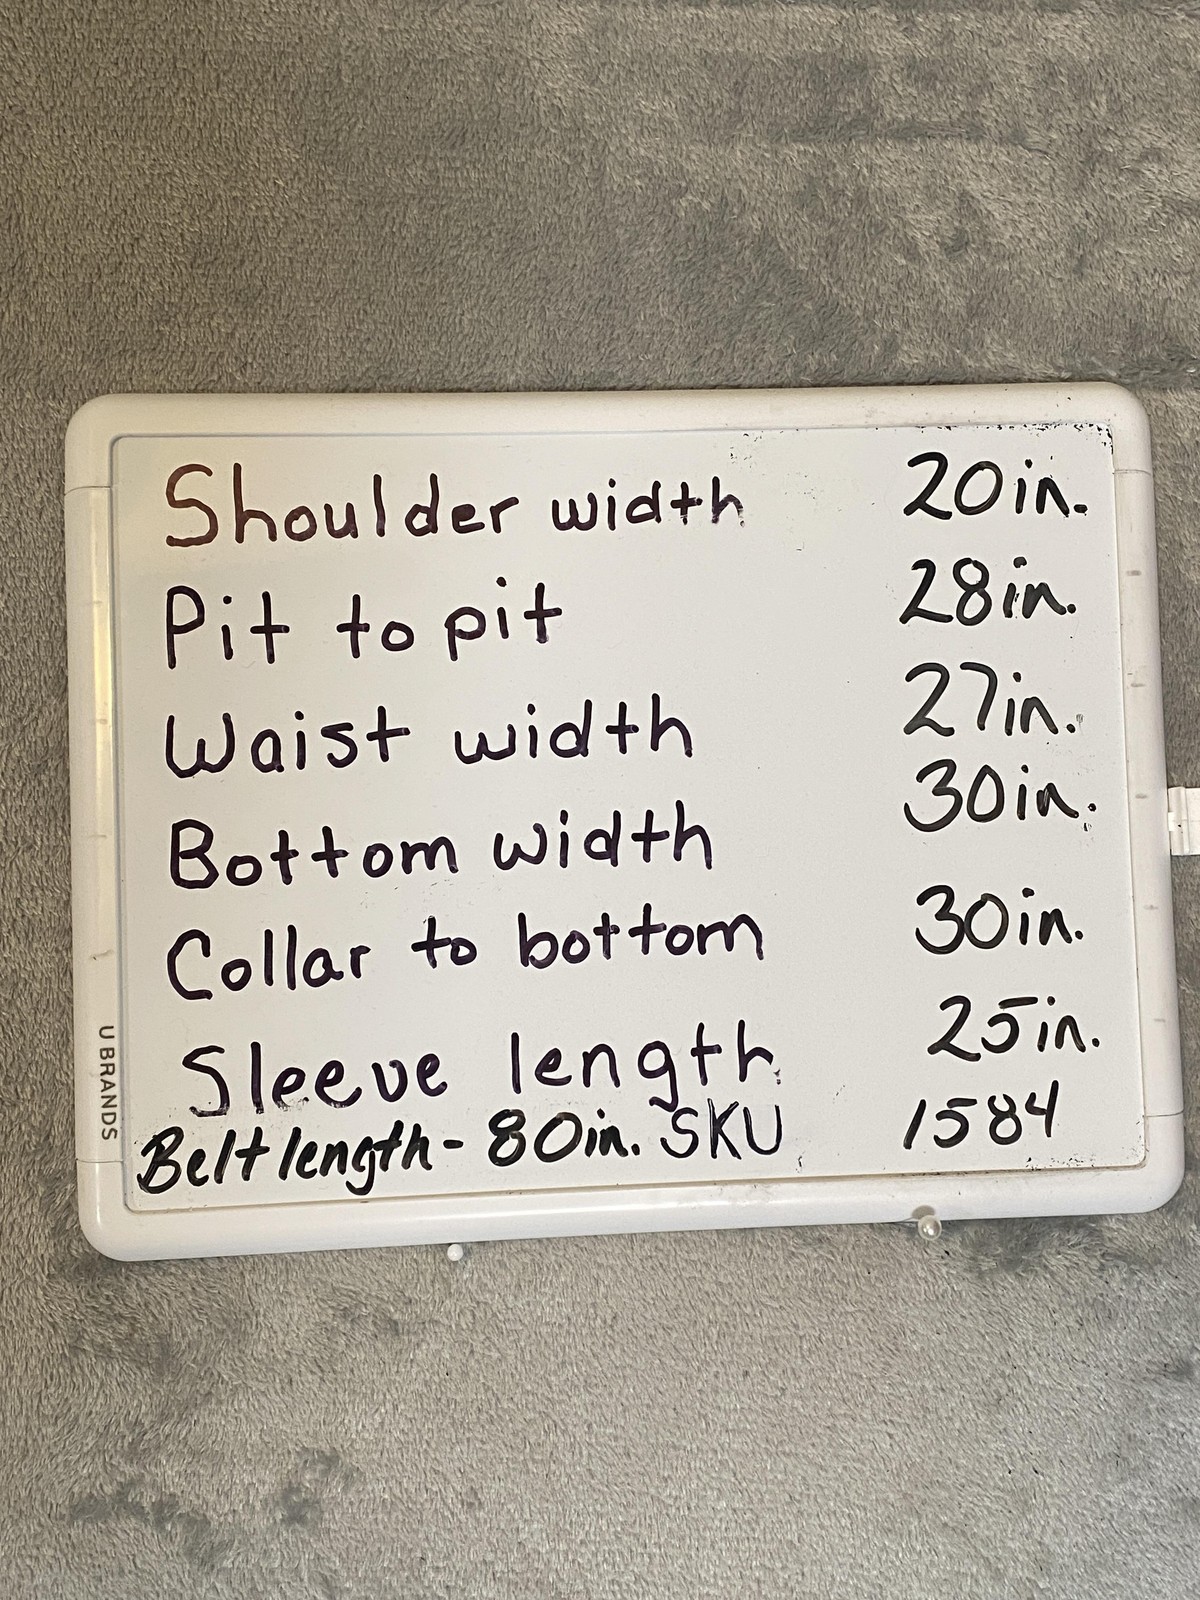 Shoulder width 20in.
Pit to pit 28in.
Waist width 27in.
Bottom width 30in.
Collar to bottom 30in.
Sleeve length 25in.
Belt length- 80in. SKU 1584
U BRANDS